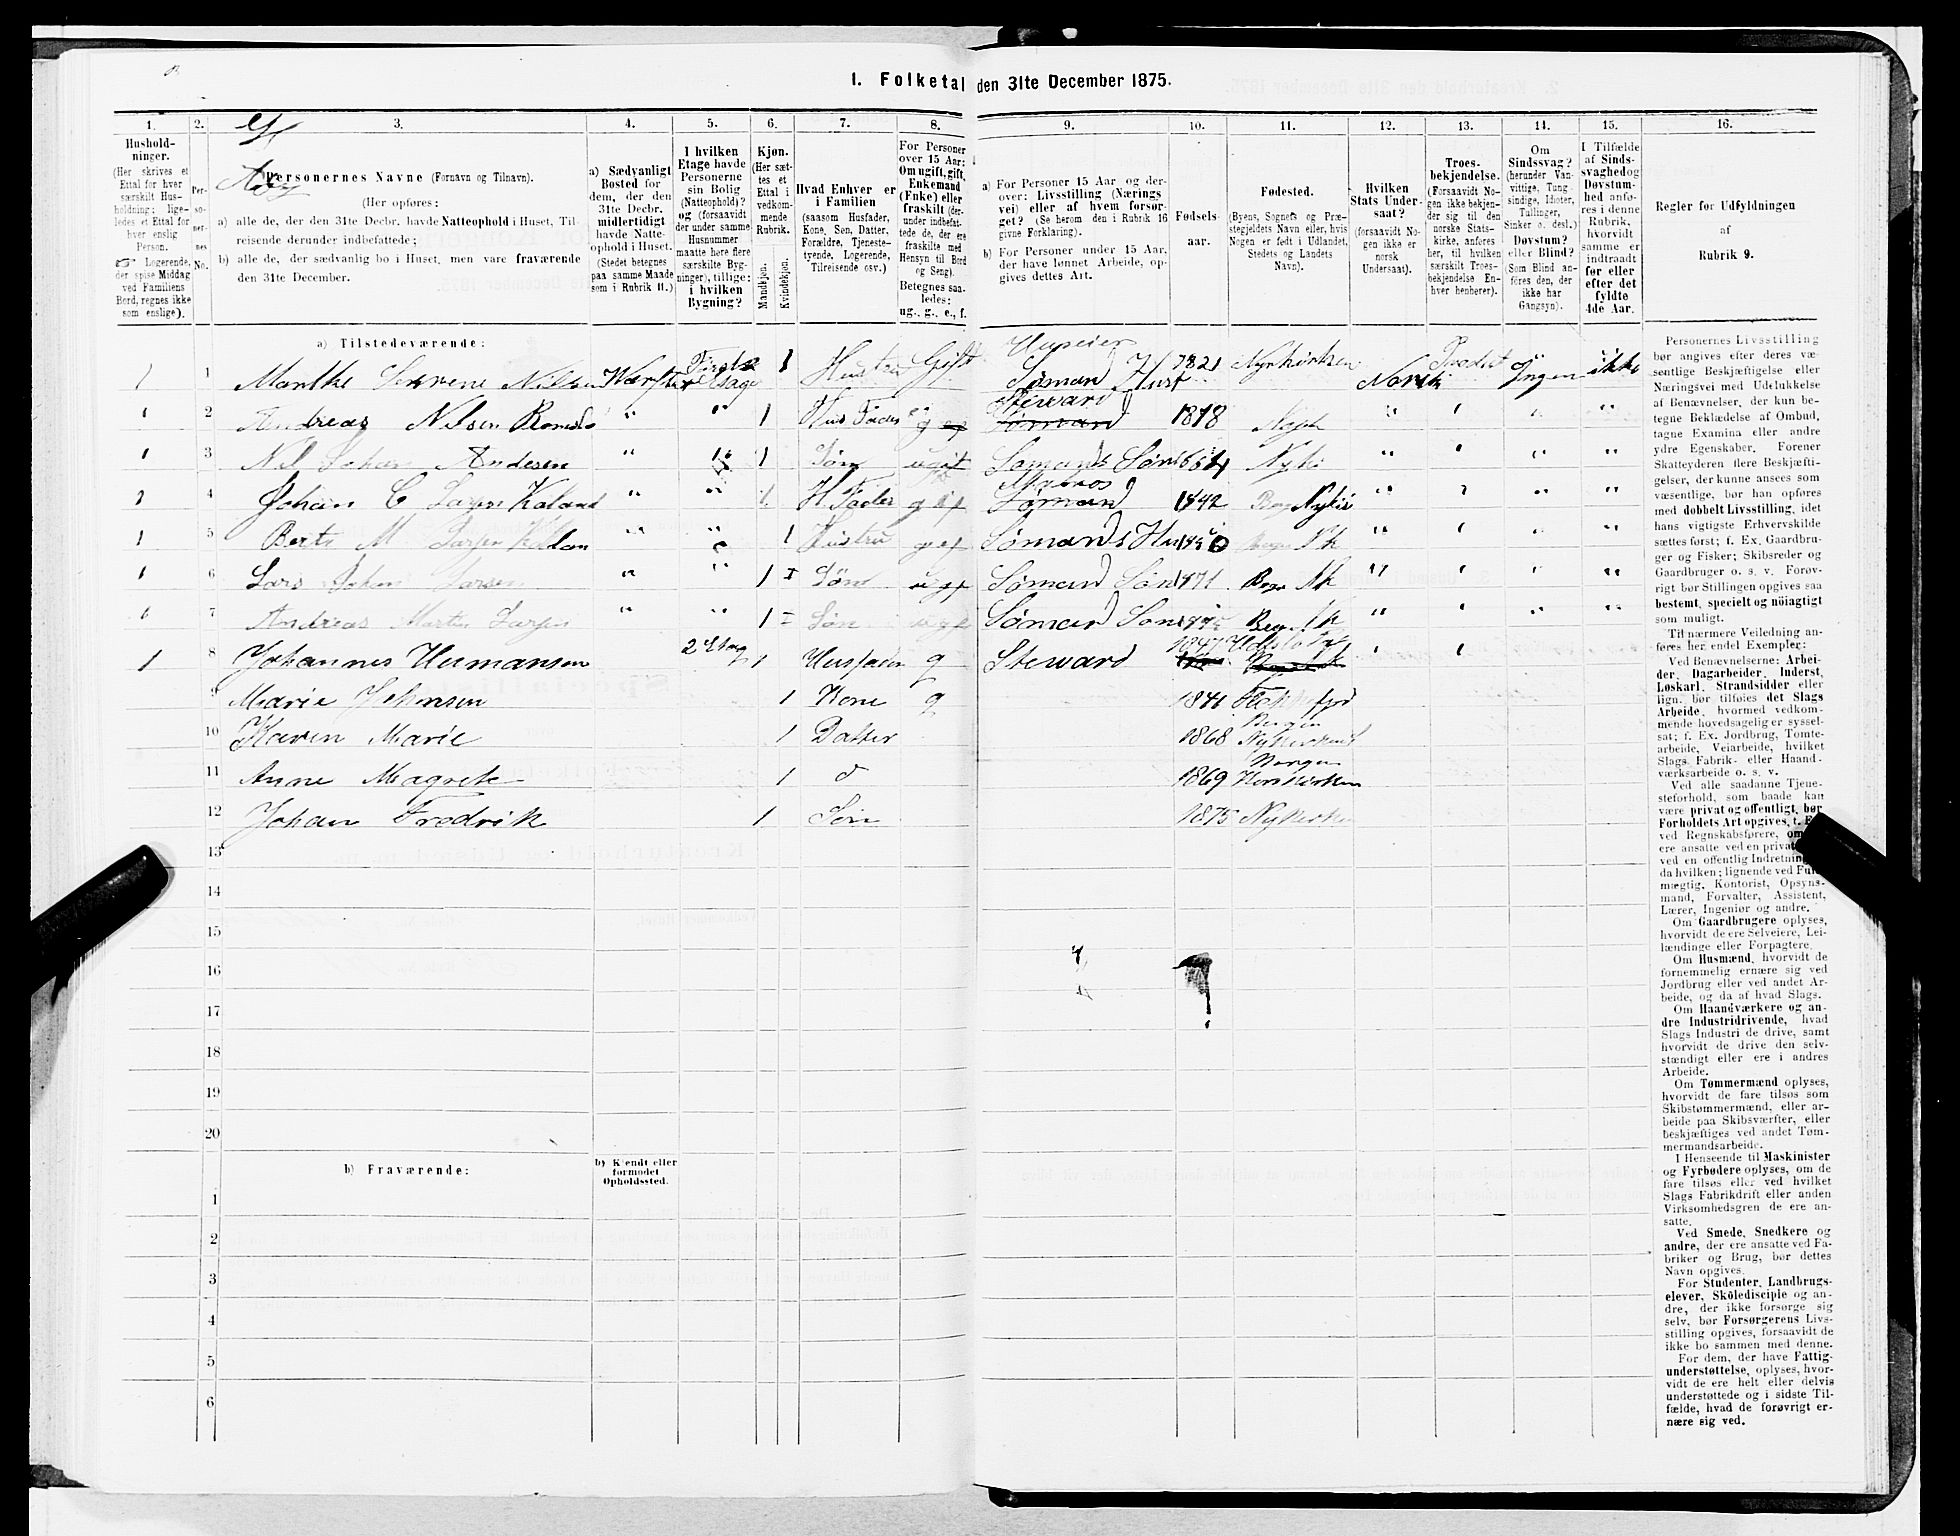 1. Folketal den 31te December 1875.
1. 2. 3. 4. 5. 6. 7. 8. 9. 10. 11. 12. 13. 14. 15. 16.
Hushold-
ninger.
(Her skrives et
Ettal for hver
særskilt Hus-
holdning; lige-
ledes et Ettal for
hver enslig
Person.
Logerende,
der spise Middag
ved Familiens
Bord, regnes ikke
som enslige).
Per-
so-
ner-
nes
No.
Personernes Navne (Fornavn og Tilnavn).
(Her opføres:
a) alle de, der den 31te Decbr. havde Natteophold i Huset, Til-
reisende derunder indbefattede;
b) alle de, der sædvanlig bo i Huset, men vare fraværende
den 31te December.
a) Sædvanligt
Bosted for
dem, der den
31te Decbr.
midlertidigt
havde Natte-
ophold i Huset.
(Stedet betegnes
paa samme Maade
som i Rubrik 11.)
I hvilken
Etage havde
Personerne
sin Bolig
(Natteophold)?
og (forsaavidt
der under samme
Husnummer
maatte høre flere
særskilte Byg-
ninger), tillige:
i hvilken
Bygning?
Kjøn.
(Her sæt-
tes et
Ettal i
vedkom-
mende
Rubrik.
Mandkjøn.
Kvindekjøn.
Hvad Enhver er
i Familien
(saasom Husfader,
Kone, Søn, Datter,
Forældre, Tjeneste-
tyende, Logerende,
Tilreisende osv.)
For Personer
over 15 Aar:
Om ugift, gift,
Enkemand
(Enke) eller
fraskilt (der-
under indbefat-
tede de, der ere
fraskilte med
Hensyn til Bord
og Seng).
Betegnes saa-
ledes:
ug., g., e., f.
a) For Personer 15 Aar og der-
over: Livsstilling (Nærings
vei) eller af hvem forsør-
get? (Se herom den i Rubrik 16
givne Forklaring).
b) For Personer under 15 Aar,
der have lønnet Arbeide, op-
gives dettes Art.
Fødsels-
aar.
Fødested.
(Byens, Sognets og Præ-
stegjeldets Navn eller, hvis
Nogen er født i Udlandet,
Stedets og Landets
Navn).
Hvilken
Stats Under-
saat?
(forsaavidt No-
gen ikke er
norsk
Undersaat).
Troes-
bekjendelse.
(Forsaavidt No-
gen ikke bekjen-
der sig til den
norske Stats-
kirke, anføres
her, til hvilken
særskilt Troes-
bekjendelse En-
hver henhører).
Om
Sindssvag?
(herunder Van-
vittige, Tung-
sindige, Idioter,
Tullinger,
Sinker o. desl.)
Døvstum?
eller Blind?
(Som Blind an-
føres den, der
ikke har
Gangsyn).
I Tilfælde
af Sinds-
svaghed og
Døvstum-
hed anfø-
res i denne
Rubrik,
hvorvidt
samme er
indtraadt
før eller
efter det
fyldte
4de Aar.
Regler for Udfyldningen
af
Rubrik 9.
a) Tilstedeværende:
1 1 Marthe Nilsen Første Etage 1 Hustru Gift Huseier Sømand Hust 1821 Nykirken Norsk Ingen ikke
1 2 Andreas Nilsen " " 1 Hus Fader Steward Sømand 1818 " " " "
1 3 Nil Johan Andesen " " 1 Søn ugift Sømands Søn " " " "
4 Johan C Larsen Kaland " " 1 H Fader Matros Sømand 1842 " " " "
1 5 M Larsen " " 1 Hustru Sømands Hu " " " "
1 6 Lars Johan Larsen " " 1 Søn Sømand Søn 1871 " " " "
7 Andreas Larsen " " 1 Søn Sømand Søn " " " "
1 8 Johannes Hermansen 2 Etag 1 Husfader g Steward 1847 " "
9 Marie Johnsen 1 Kone g 1841
10 Karen Marie 1 Datter 1868 Bergen
11 Anne Magrete 1 d 1869 Bergen Korskirken
12 Johan Fredrik 1 Søn 1875 Nykirken
13
14
15
16
17
18
19
20
b) Fraværende:
b) Kjendt eller
formodet
Opholdssted.
1
2
3
4
5
6
Personernes Livsstilling
bør angives efter deres væ-
sentlige Beskjæftigelse eller
Næringsvei med Udelukkelse
af Benævnelser, der kun be-
tegne Beklædelse af Ombud,
tagne Examina eller andre
ydre Egenskaber. Forener
Skatteyderen flere Beskjæfti-
gelser, der kunne ansees som
væsentlige, bør han opføres
med dobbelt Livsstilling, idet
hans vigtigste Erhvervskilde
sættes først; f. Ex. Gaardbru-
ger og Fisker; Skibsreder og
Gaardbruger o. s. v. Forøv-
rigt bør Stillingen opgives saa
bestemt, specielt og nöiagtigt
som muligt.
Til nærmere Veiledning an-
føres her endel Exempler:
Ved Benævnelserne: Arbei-
der, Dagarbeider, Inderst,
Løskarl, Strandsidder eller
lign. bør tilføies det Slags
Arbeide, hvormed vedkom-
mende hovedsagelig er syssel-
sat; f. Ex. Jordbrug, Tomte-
arbeide, Veiarbeide, hvilket
Slags Fabrik- eller Haand-
værksarbeide o. s. v.
Ved alle saadanne Tjene-
steforhold, som baade kan
være privat og offentligt, bør
Forholdets Art opgives, t. E
ved Regnskabsførere, om
ere ansatte ved en privat
ved en offentlig Indretning
da hvilken; lignende ved Fuld-
mægtig, Kontorist, Opsyns-
mand, Forvalter, Assistent,
Lærer, Ingeniør og andre.
Om Gaardbrugere oplyses,
hvorvidt de ere Selveiere, Lei-
lændinge eller Forpagtere.
Om Husmænd, hvorvidt de
fornemmelig ernære sig ved
Jordbrug eller ved andet Ar-
beide, og da af hvad Slags.
Om Haandværkere og an-
dre Industridrivende, hvad
Slags Industri de drive, samt
hvorvidt de drive den selv-
stændigt eller ere i andres
Arbeide.
Om Tømmermænd oplyses,
hvorvidt de fare tilsøs som
Skibstømmermænd, eller ar-
beide paa Skibsværfter, eller
beskjæftiges ved andet Tøm-
mermandsarbeide.
I Henseende til Maskinister
og Fyrbødere oplyses, om de
fare tilsøs eller ved hvilket
Slags Fabrikdrift eller anden
Virksomhedsgren de ere an-
satte.
Ved Smede, Snedkere og
andre, der ere ansatte ved Fa-
briker og Brug, bør dettes
Navn opgives.
For Studenter, Landbrugs-
elever, Skoledisciple og an-
dre, der ikke forsørge sig
selv, bør Forsørgerens Livs-
stilling opgives, forsaavidt de
ikke bo sammen med denne.
For dem, der have Fattig-
understøttelse, oplyses, hvor-
vidt de ere helt eller delvis
understøttede og i sidste Til-
fælde, hvad de forøvrigt er-
nære sig ved.